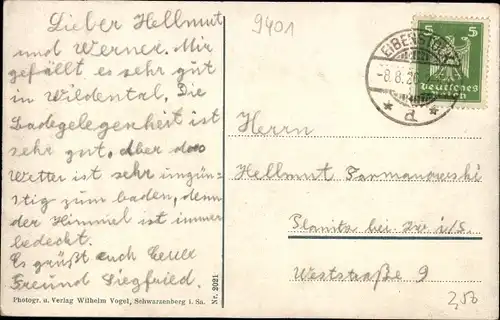 Lieber Hellmut
und Werner. Mir
gefällt es sehr gut
in Wildental. Die
Badegelegenheit ist
sehr gut, aber das
Wetter ist sehr ungün-
stig zum baden, denn
der Himmel ist immer
bedeckt.
Es grüßt euch Euer
Freund Siegfried.
Photogr. u. Verlag Wilhelm Vogel, Schwarzenberg i. Sa.
Nr. 2021
9401
-8.8.26
* d *
5 5
Deutsches
Herrn
Hellmut
Planitz bei i/S.
Weststraße 9
2,50